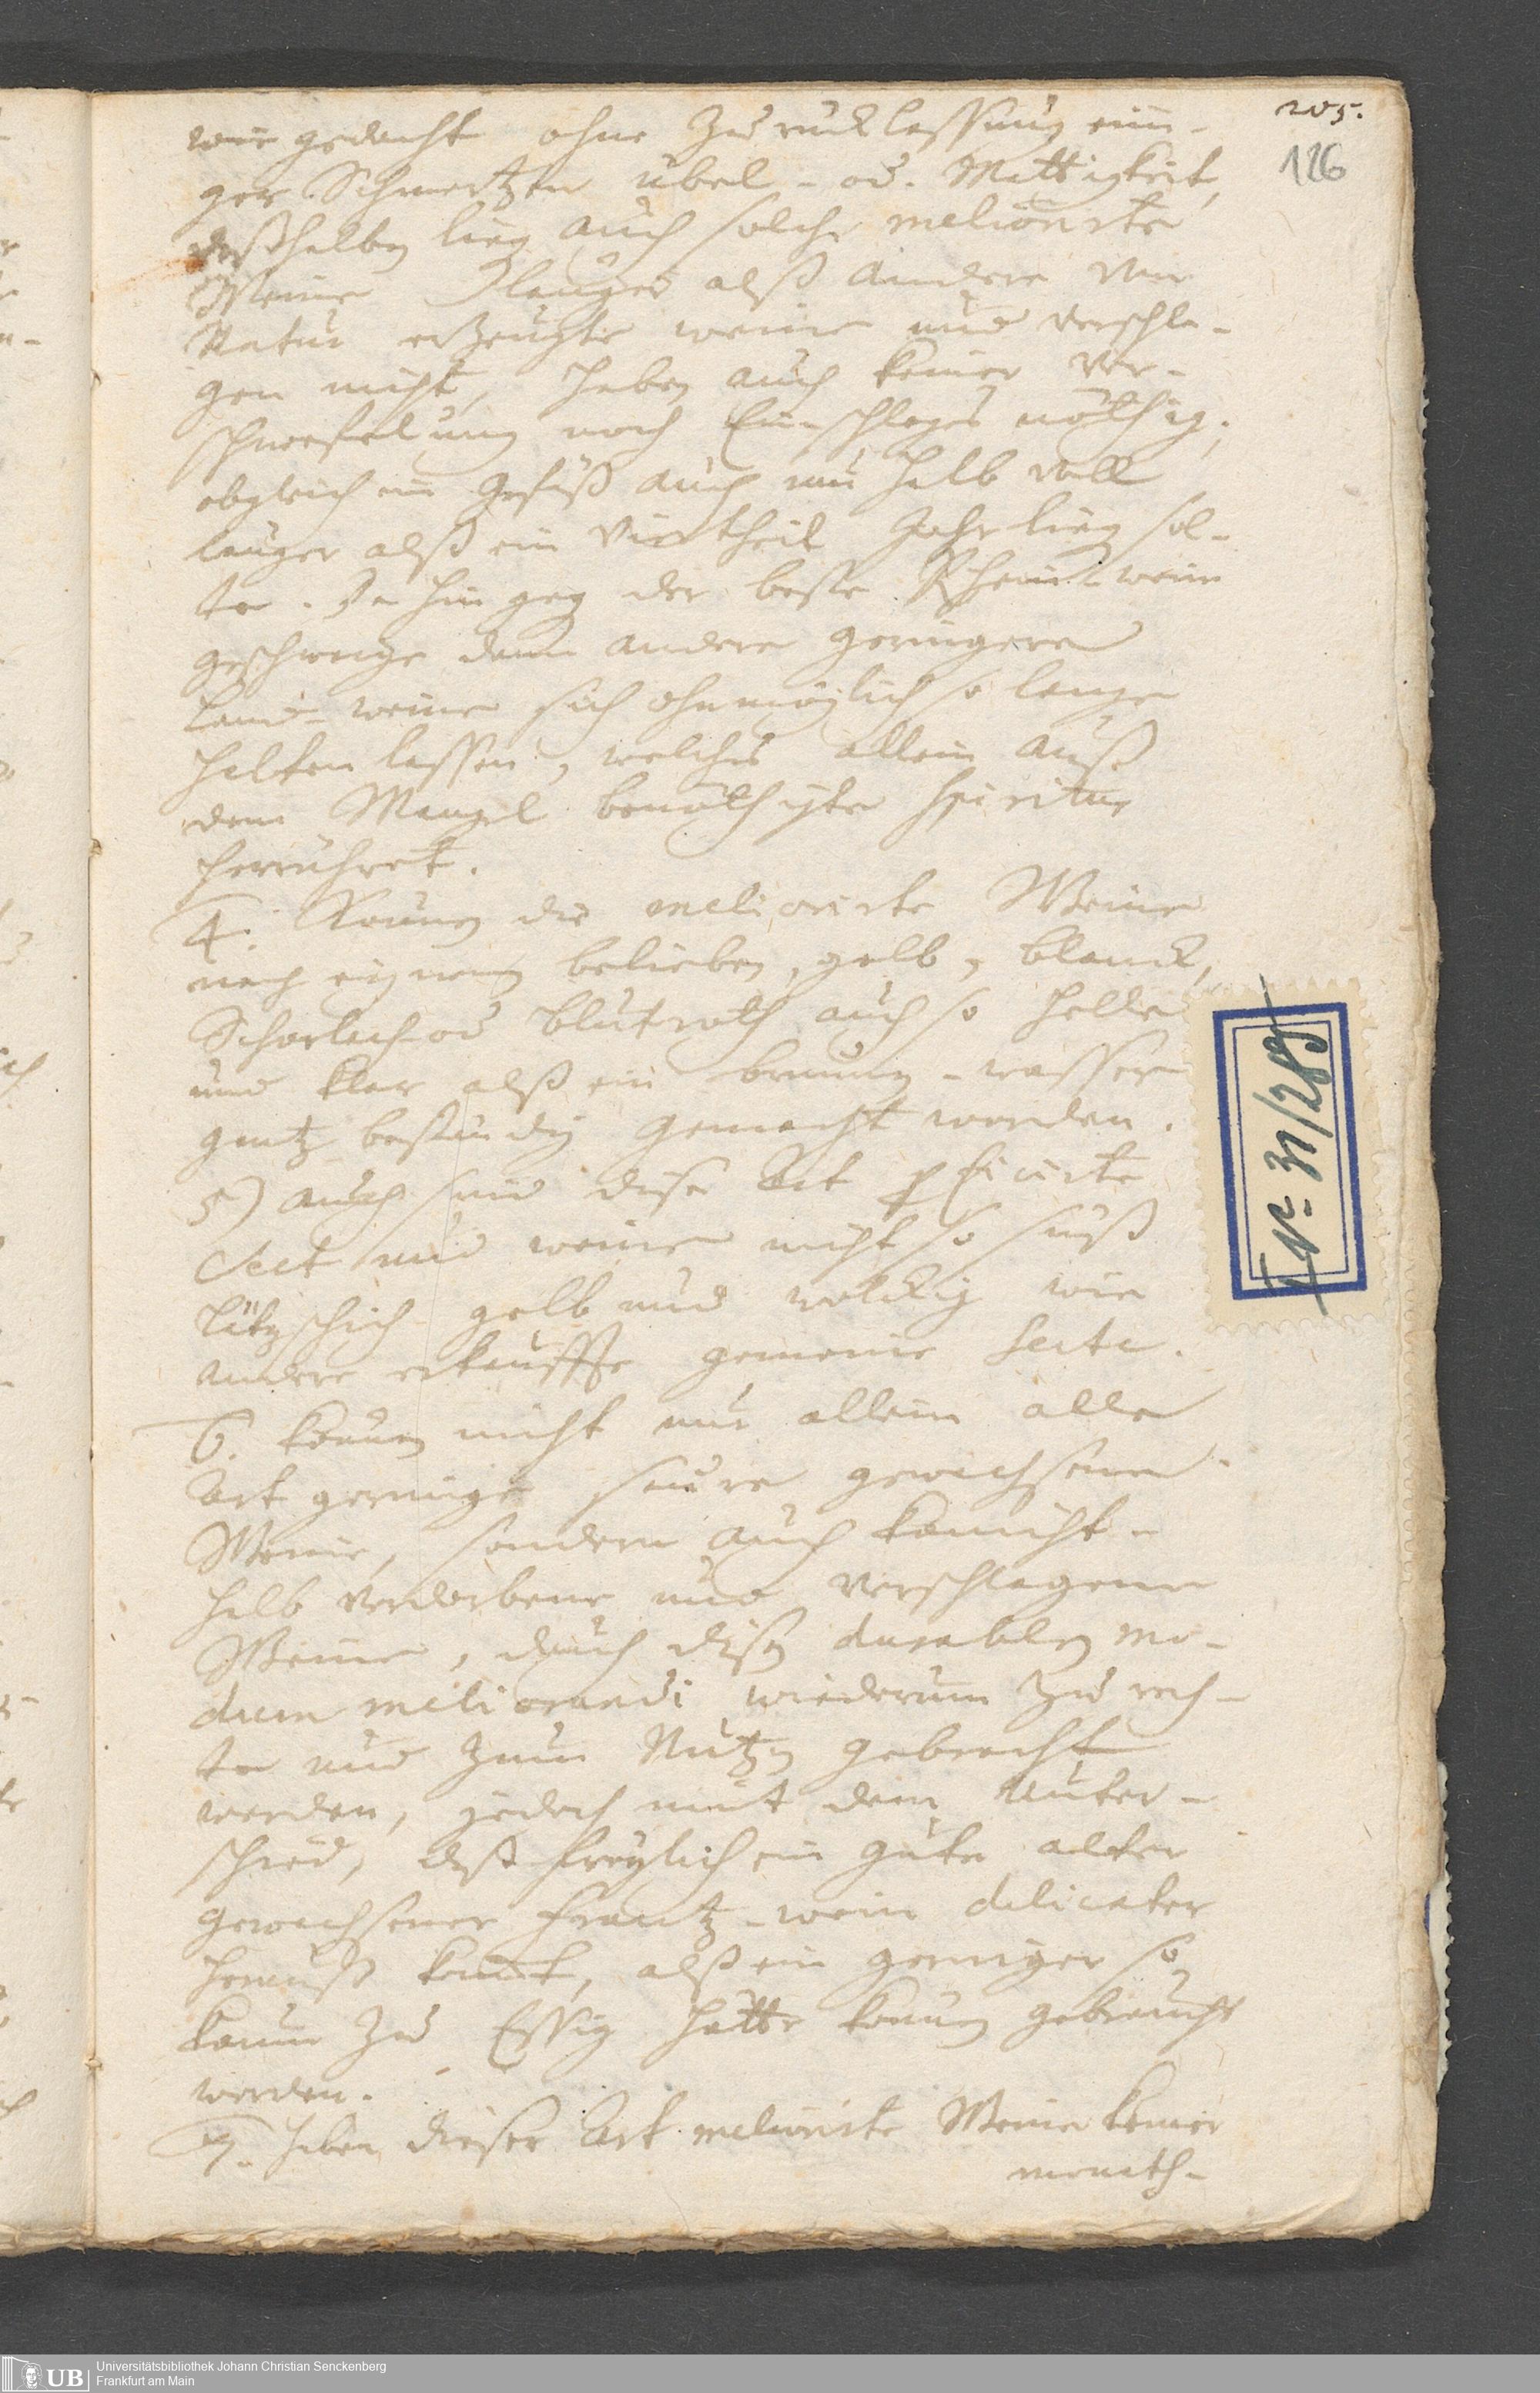 205.
126
wie gedacht ohne Zurucklassung eini-
ger Schmertzen übel- od. Mattigkeit,
deßhalben lieg auch solche meliorirte
Weine länger alß andere von
Natur erzeugte weine und verschla-
gen nicht, haben auch keiner Ver-
schwefelung noch Einschlages nöthig,
obgleich ein Gefäß auch nur halb voll
länger alß ein Viertheil Jahr lieg sol-
te. Da hin geg der beste Rhein-wein
geschweige dann andere geringere
Land-weine sich ohnmöglich so lange
halten lassen, welches allein auß
dem Mangel benöthigter Spiritus
herrühret.
4. Können die meliorirte Weine
nach eigenem belieben, gelb, blanck,
Scharlach od blutroth auch so helle
und klar alß ein brunnen-wasser
gantz beständig gemacht werden.
5) auch sind diese Art
Sect und weine nicht so süß
gelb und wie
andere erkauffte gemeine Secte.
6. können nicht nur allein alle
Art geringe saure gewachsene
Weine, sondern auch
halb verdorbene und verschlagene
Weine, durch dißen durablen mo-
dum meliorandi wiederum zu rech-
te und zum Nutzen gebracht
werden, jedoch mit dem Unter-
schied, daß freylich ein guter alter
gewachsener Frantz-wein delicater
herauß komt, alß ein geringer so
kaum zu Essig hätte können gebraucht
werden.
7. haben dieser Art meliorirte Weine keiner
monath-
No 31/285
UB
Universitätsbibliothek Johann Christian Senckenberg
Frankfurt am Main